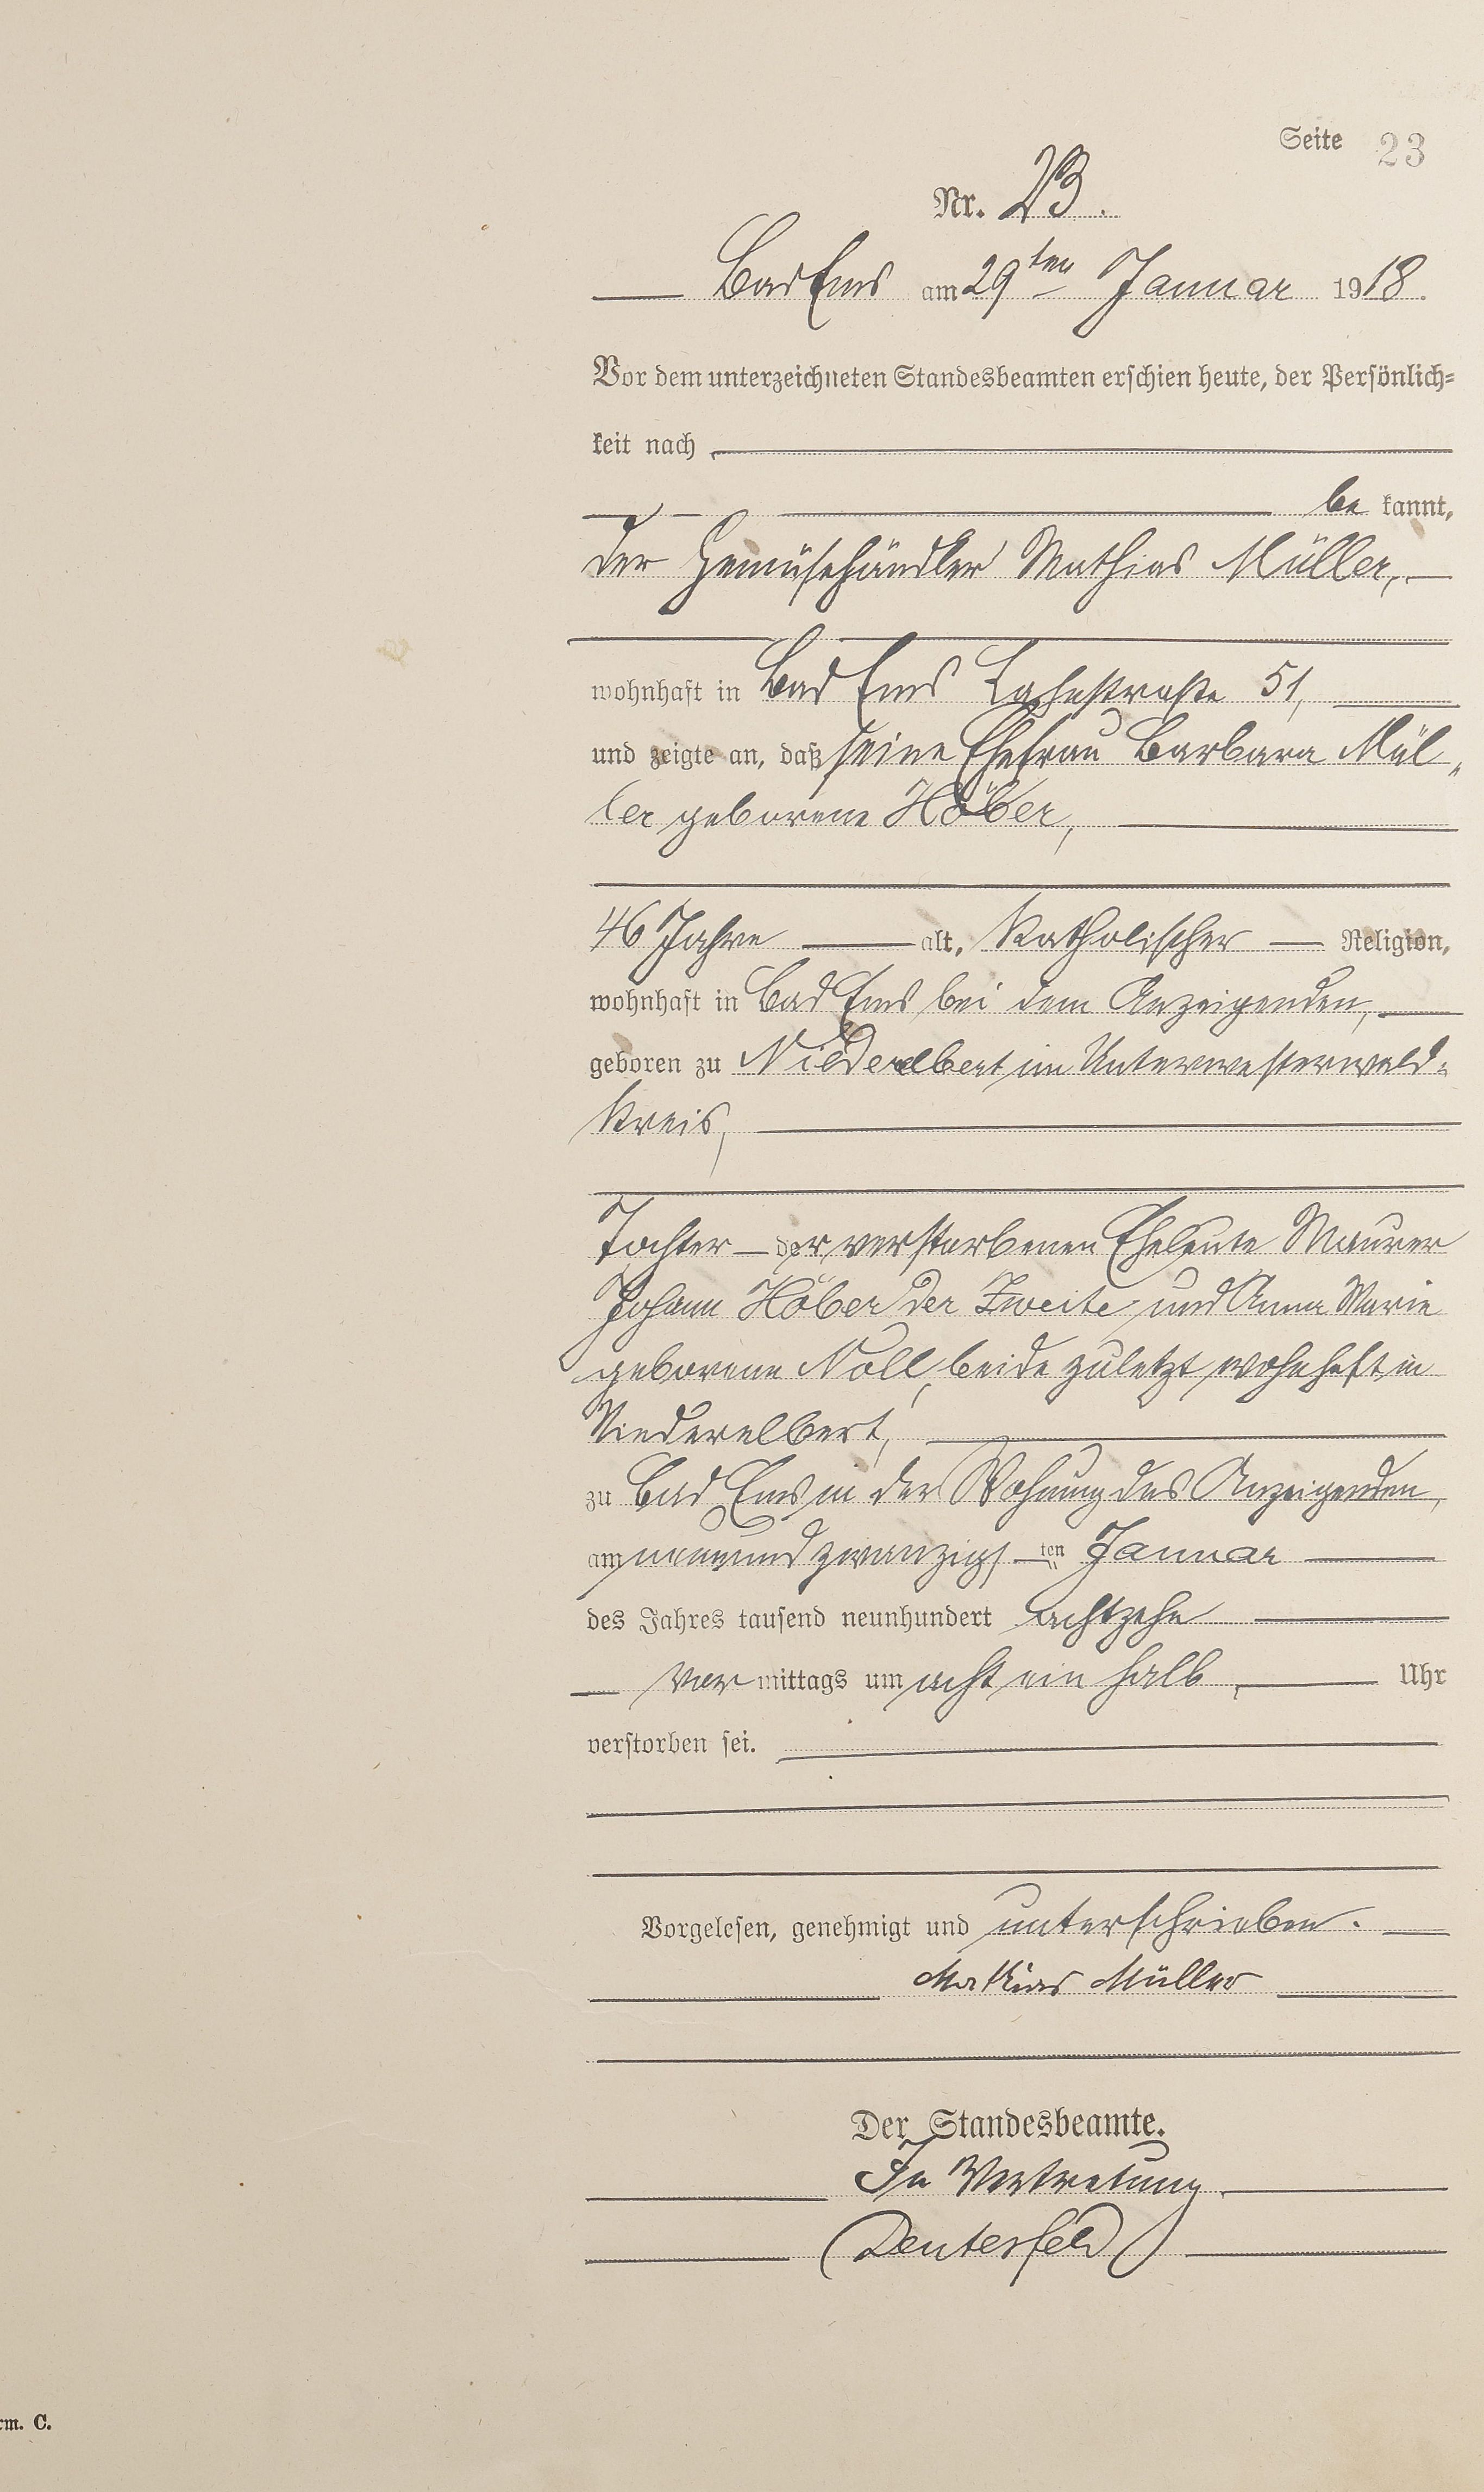 Seite 23
Nr. 23.
Bad Ems am 29ten Januar 1918.
Vor dem unterzeichneten Standesbeamten erschien heute, der Persönlich=
keit nach
be kannt,
der Gemüsehändler Mathias Müller,
wohnhaft in Bad Ems Lahnstraße 51,
und zeigte an, daß seine Ehefrau Barbara Mül„
ler geborene Höber,
46 Jahre alt, katholischer Religion,
wohnhaft in Bad Ems bei dem Anzeigenden,
geboren zu Niederelbert im Unterwesterwald=
kreis,
Tochter der verstorbenen Eheleute Maurer
Johann Höber der Zweite und Anna Marie
geborene Noll, beide zuletzt wohnhaft in
Niederelbert,
zu Bad Ems in der Wohnung des Anzeigenden,
am neunundzwanzigsten Januar
des Jahres tausend neunhundert achtzehn
vor mittags um acht ein halb Uhr
verstorben sei.
Vorgelesen, genehmigt und unterschrieben.
Mathias Müller
Der Standesbeamte.
In Vertretung
Deutesfeld
rm. C.